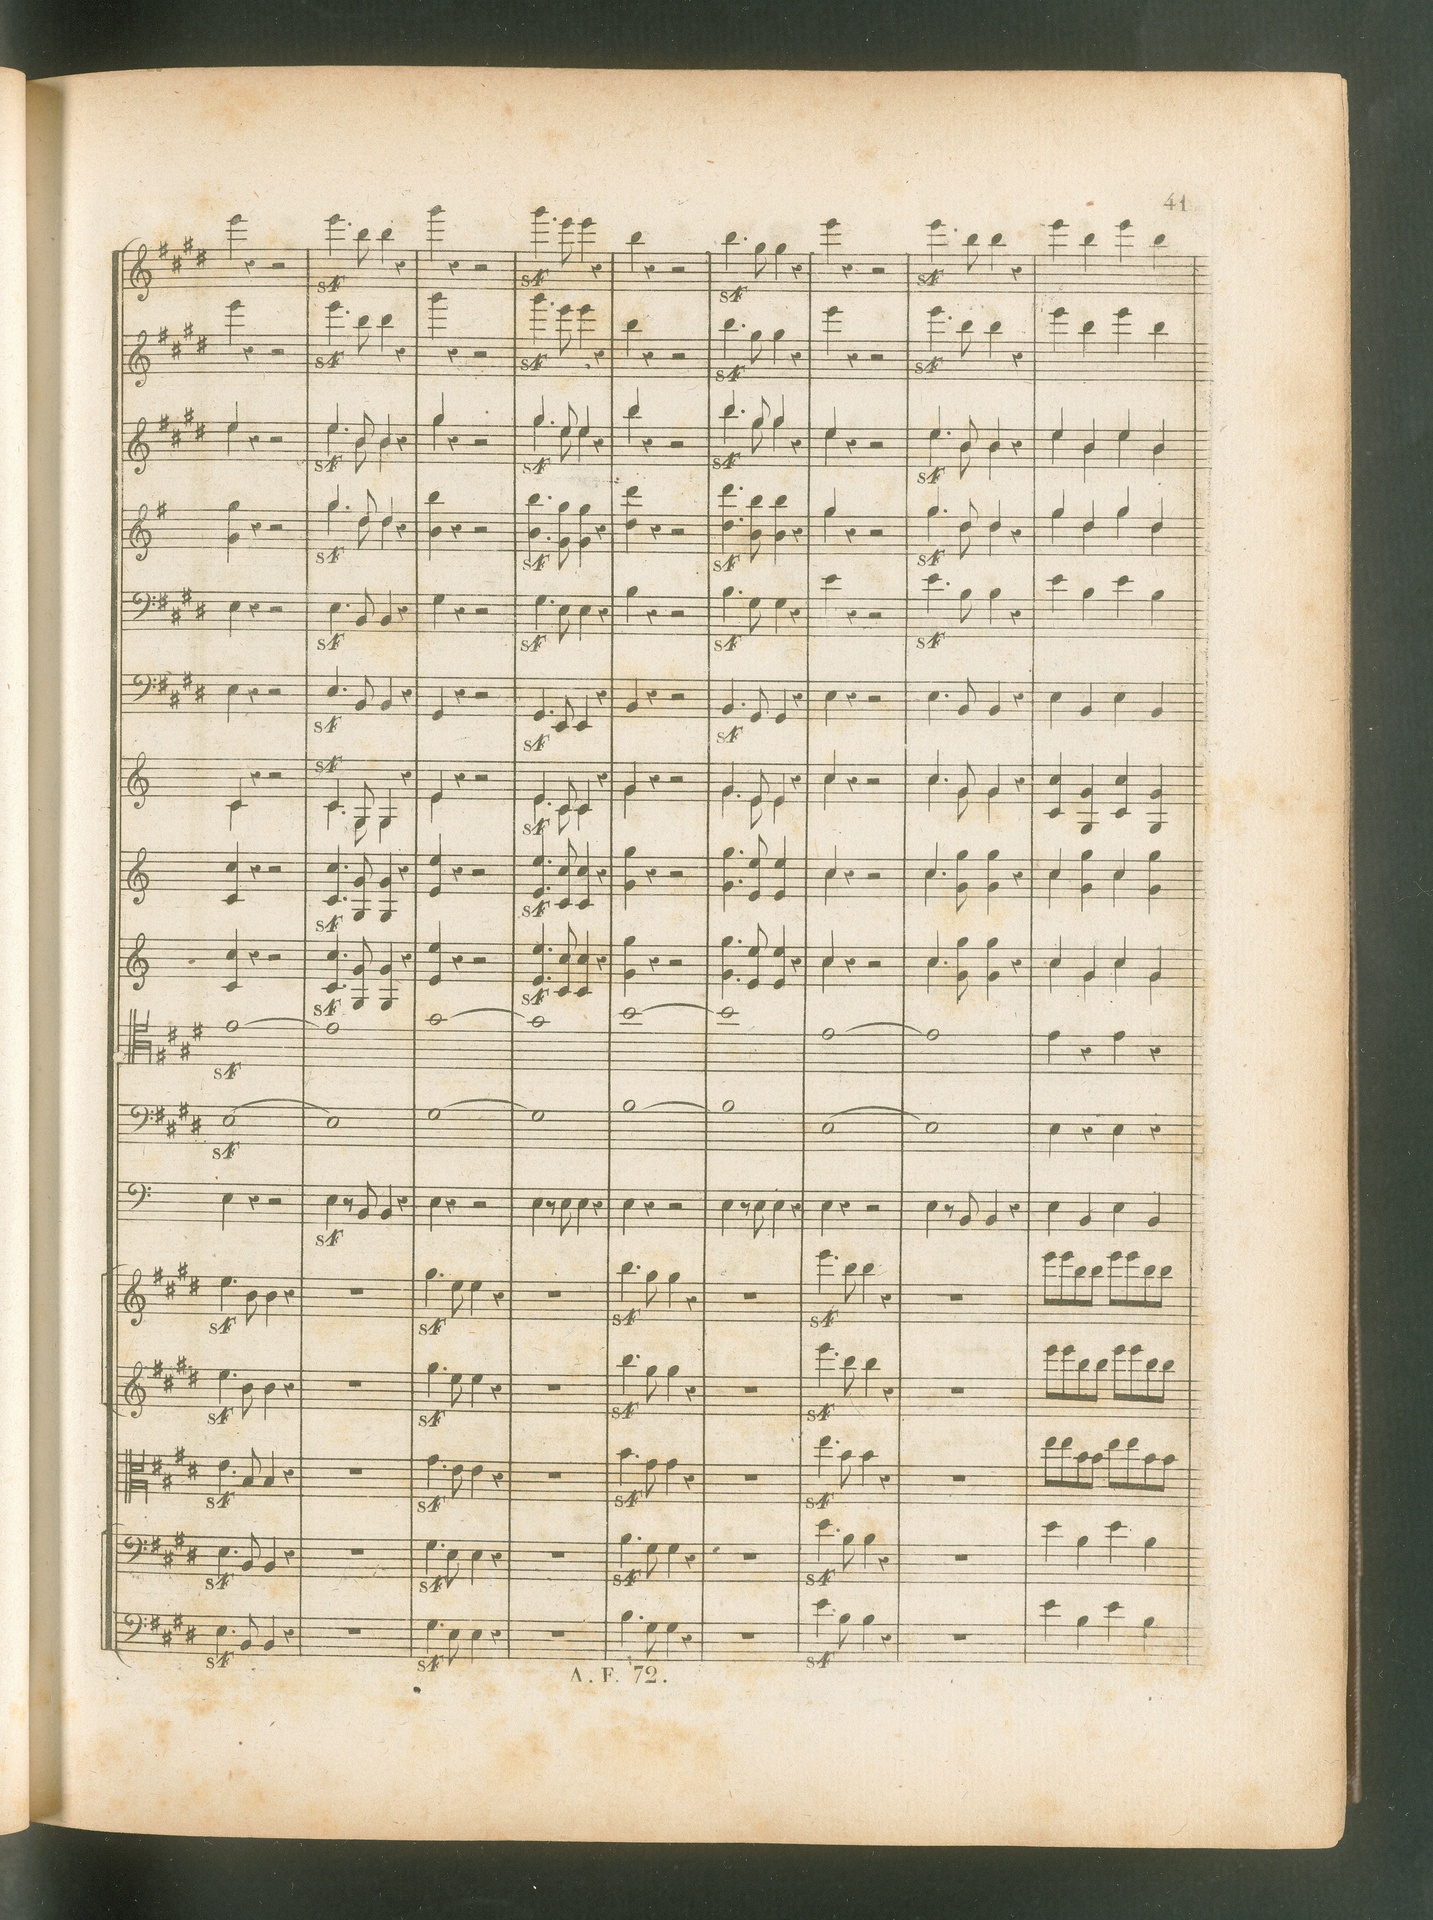 41
sf sf sf sf
sf sf sf sf
sf sf sf sf
sf sf sf sf
sf sf sf sf
sf sf sf
sf
sf
sf sf
sf sf
sf
sf
sf
sf sf sf sf
sf sf sf sf
sf sf sf sf
sf sf sf sf
sf sf sf
A. F. 72.